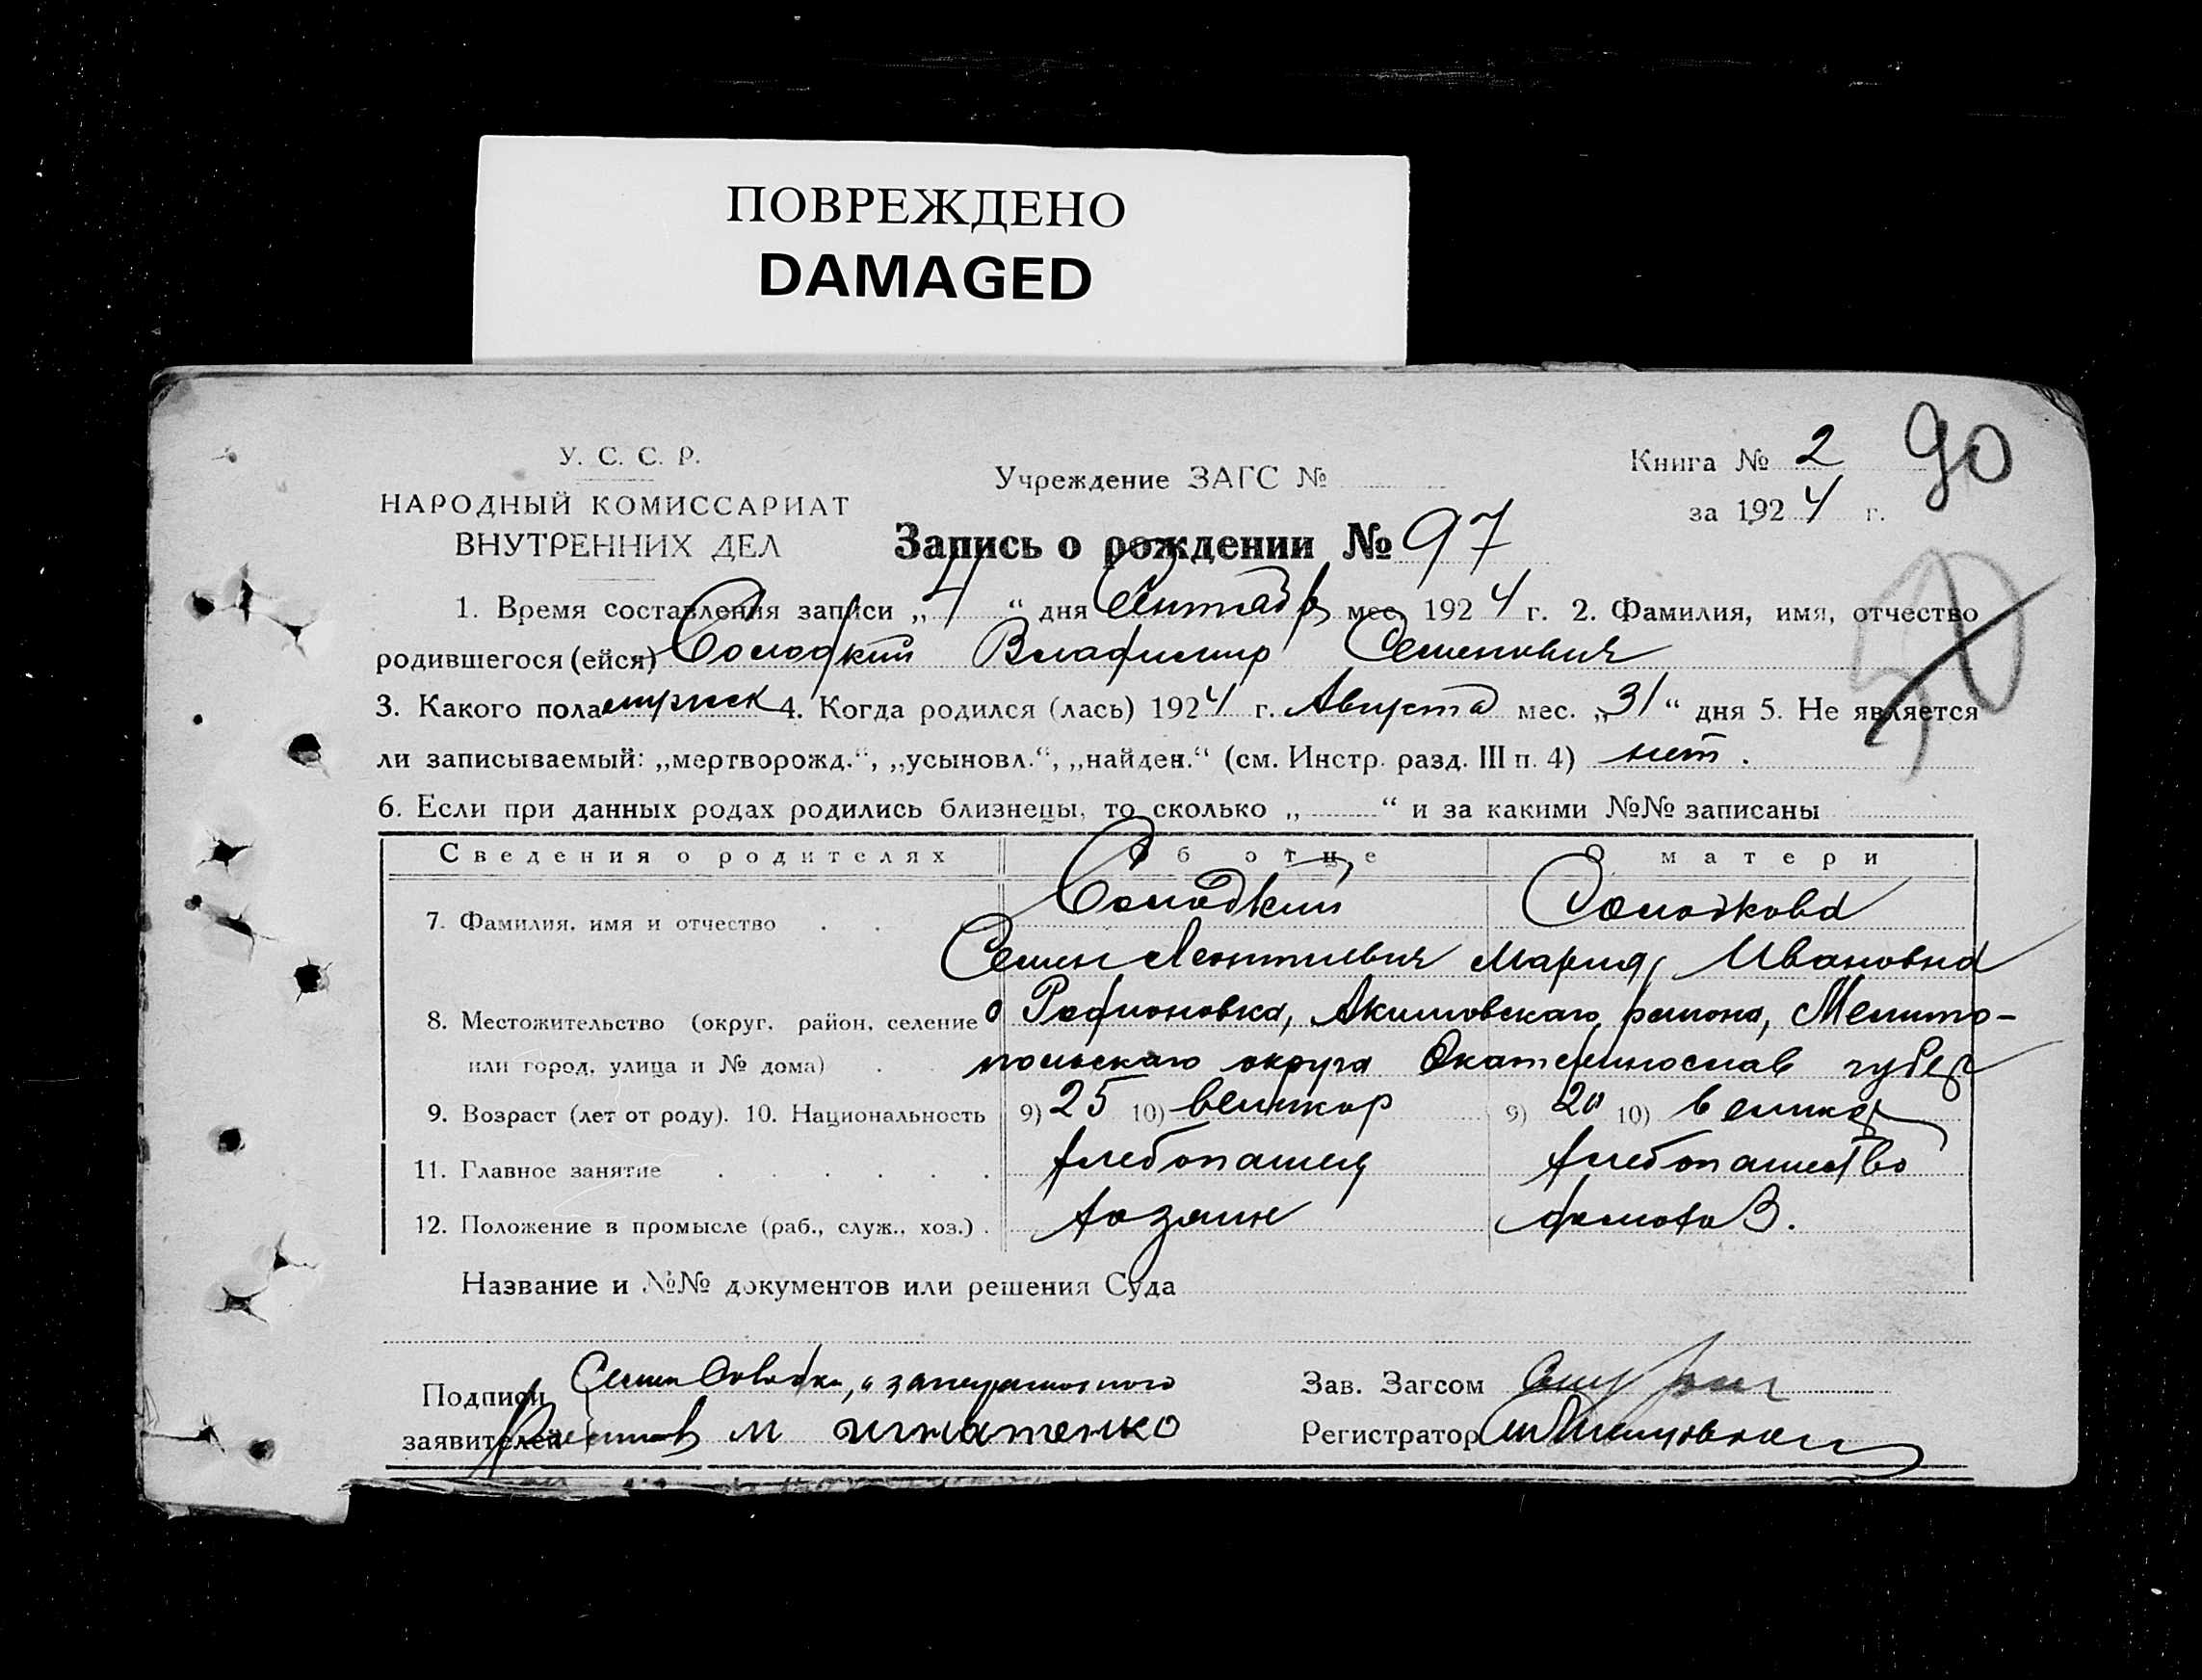 ПОВРЕЖДЕНО
DAMAGED
У. С. С. Р.
НАРОДНЫЙ КОМИССАРИАТ
ВНУТРЕННИХ ДЕЛ
Учреждение ЗАГС №
Книга № 2
90
за 1924 г.
Запись о рождении № 97
1. Время составления записи „4“ дня Сентябр мес. 1924 г. 2. Фамилия, имя, отчество
родившегося (ейся) Солодкий Владимир Семенович
3. Какого пола мужск 4. Когда родился (лась) 1924 г. Августа мес. „31“ дня 5. Не является
ли записываемый: „мертворожд.“, „усыновл.“, „найден.“ (см. Инстр. разд. III п. 4) нет.
6. Если при данных родах родились близнецы, то сколько „ “ и за какими №№ записаны
Сведения о родителях Об отце О матери
7. Фамилия, имя и отчество Солодкий Солодкова
Семен Леонтиевич Мария Ивановна
8. Местожительство (округ, район, селение Родионовка, Акимовскаго района, Мелито-
или город, улица и № дома) польскаго округа Екатеринослав губер
9. Возраст (лет от роду). 10. Национальность 9) 25 10) великор 9) 20 10) великор
11. Главное занятие хлебопашец хлебопашество
12. Положение в промысле (раб., служ., хоз.) хозяин домохоз.
Название и №№ документов или решения Суда
Подписи Семен
заявителей М Игнатенко
Зав. Загсом
Регистратор